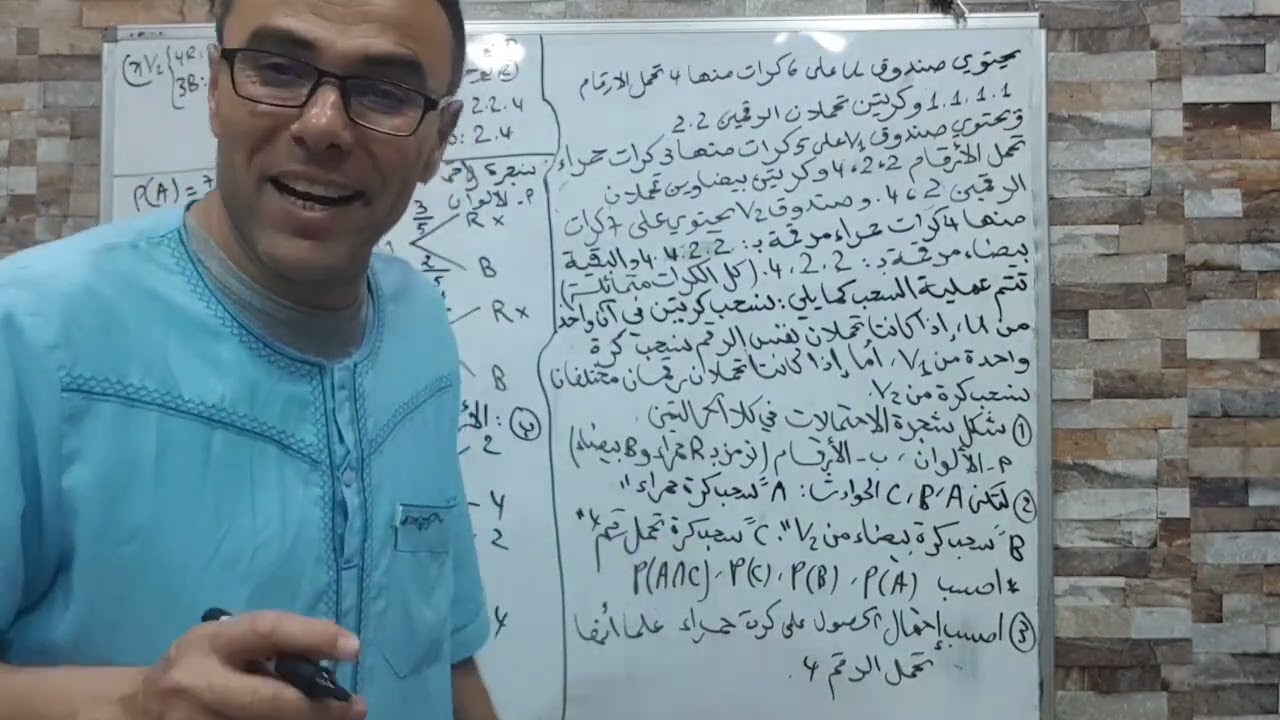 يحتوي صندوق U على 6 كرات منها 4 تحمل الارقام
1.1.1.1 وكريتين تحملان الرقمين 2.2
ويحتوي صندوق V₁ على 5 كرات منها 3 كرات حمراء
تحمل الأرقام 2، 2، 4 وكريتين بيضاوين تحملان
الرقمين 2، 4. وصندوق V₂ يحتوي على 7 كرات
منها 4 كرات حمراء مرقمة بـ: 2.2.4.4 والبقية
بيضاء مرقمة بـ: 2.2.4. (كل الكرات متماثلة)
تتم عملية السحب كما يلي: نسحب كريتين في آن واحد
من U، إذا كانتا تحملان نفس الرقم نسحب كرة
واحدة من V₁، أما إذا كانتا تحملان رقمان مختلفان
نسحب كرة من V₂.
① شكل شجرة الاحتمالات في كلا الحالتين
P- الألوان، ب- الأرقام (نرمز بـ R حمراء و B بيضاء)
② لتكن A، B، C الحوادث: A "نسحب كرة حمراء"
B "سحب كرة بيضاء من V₂". C "سحب كرة تحمل رقم 4"
* احسب P(A)، P(B)، P(C)، P(A∩C)
③ احسب إحتمال الحصول على كرة حمراء علما أنها
تحمل الرقم 4.
V₂ { 4R:
3B:
②
2.2.4
: 2.4
P(A) = 7
P- الالوان
3/5
R x
2/5
B
R x
B
③
2
4
2
4